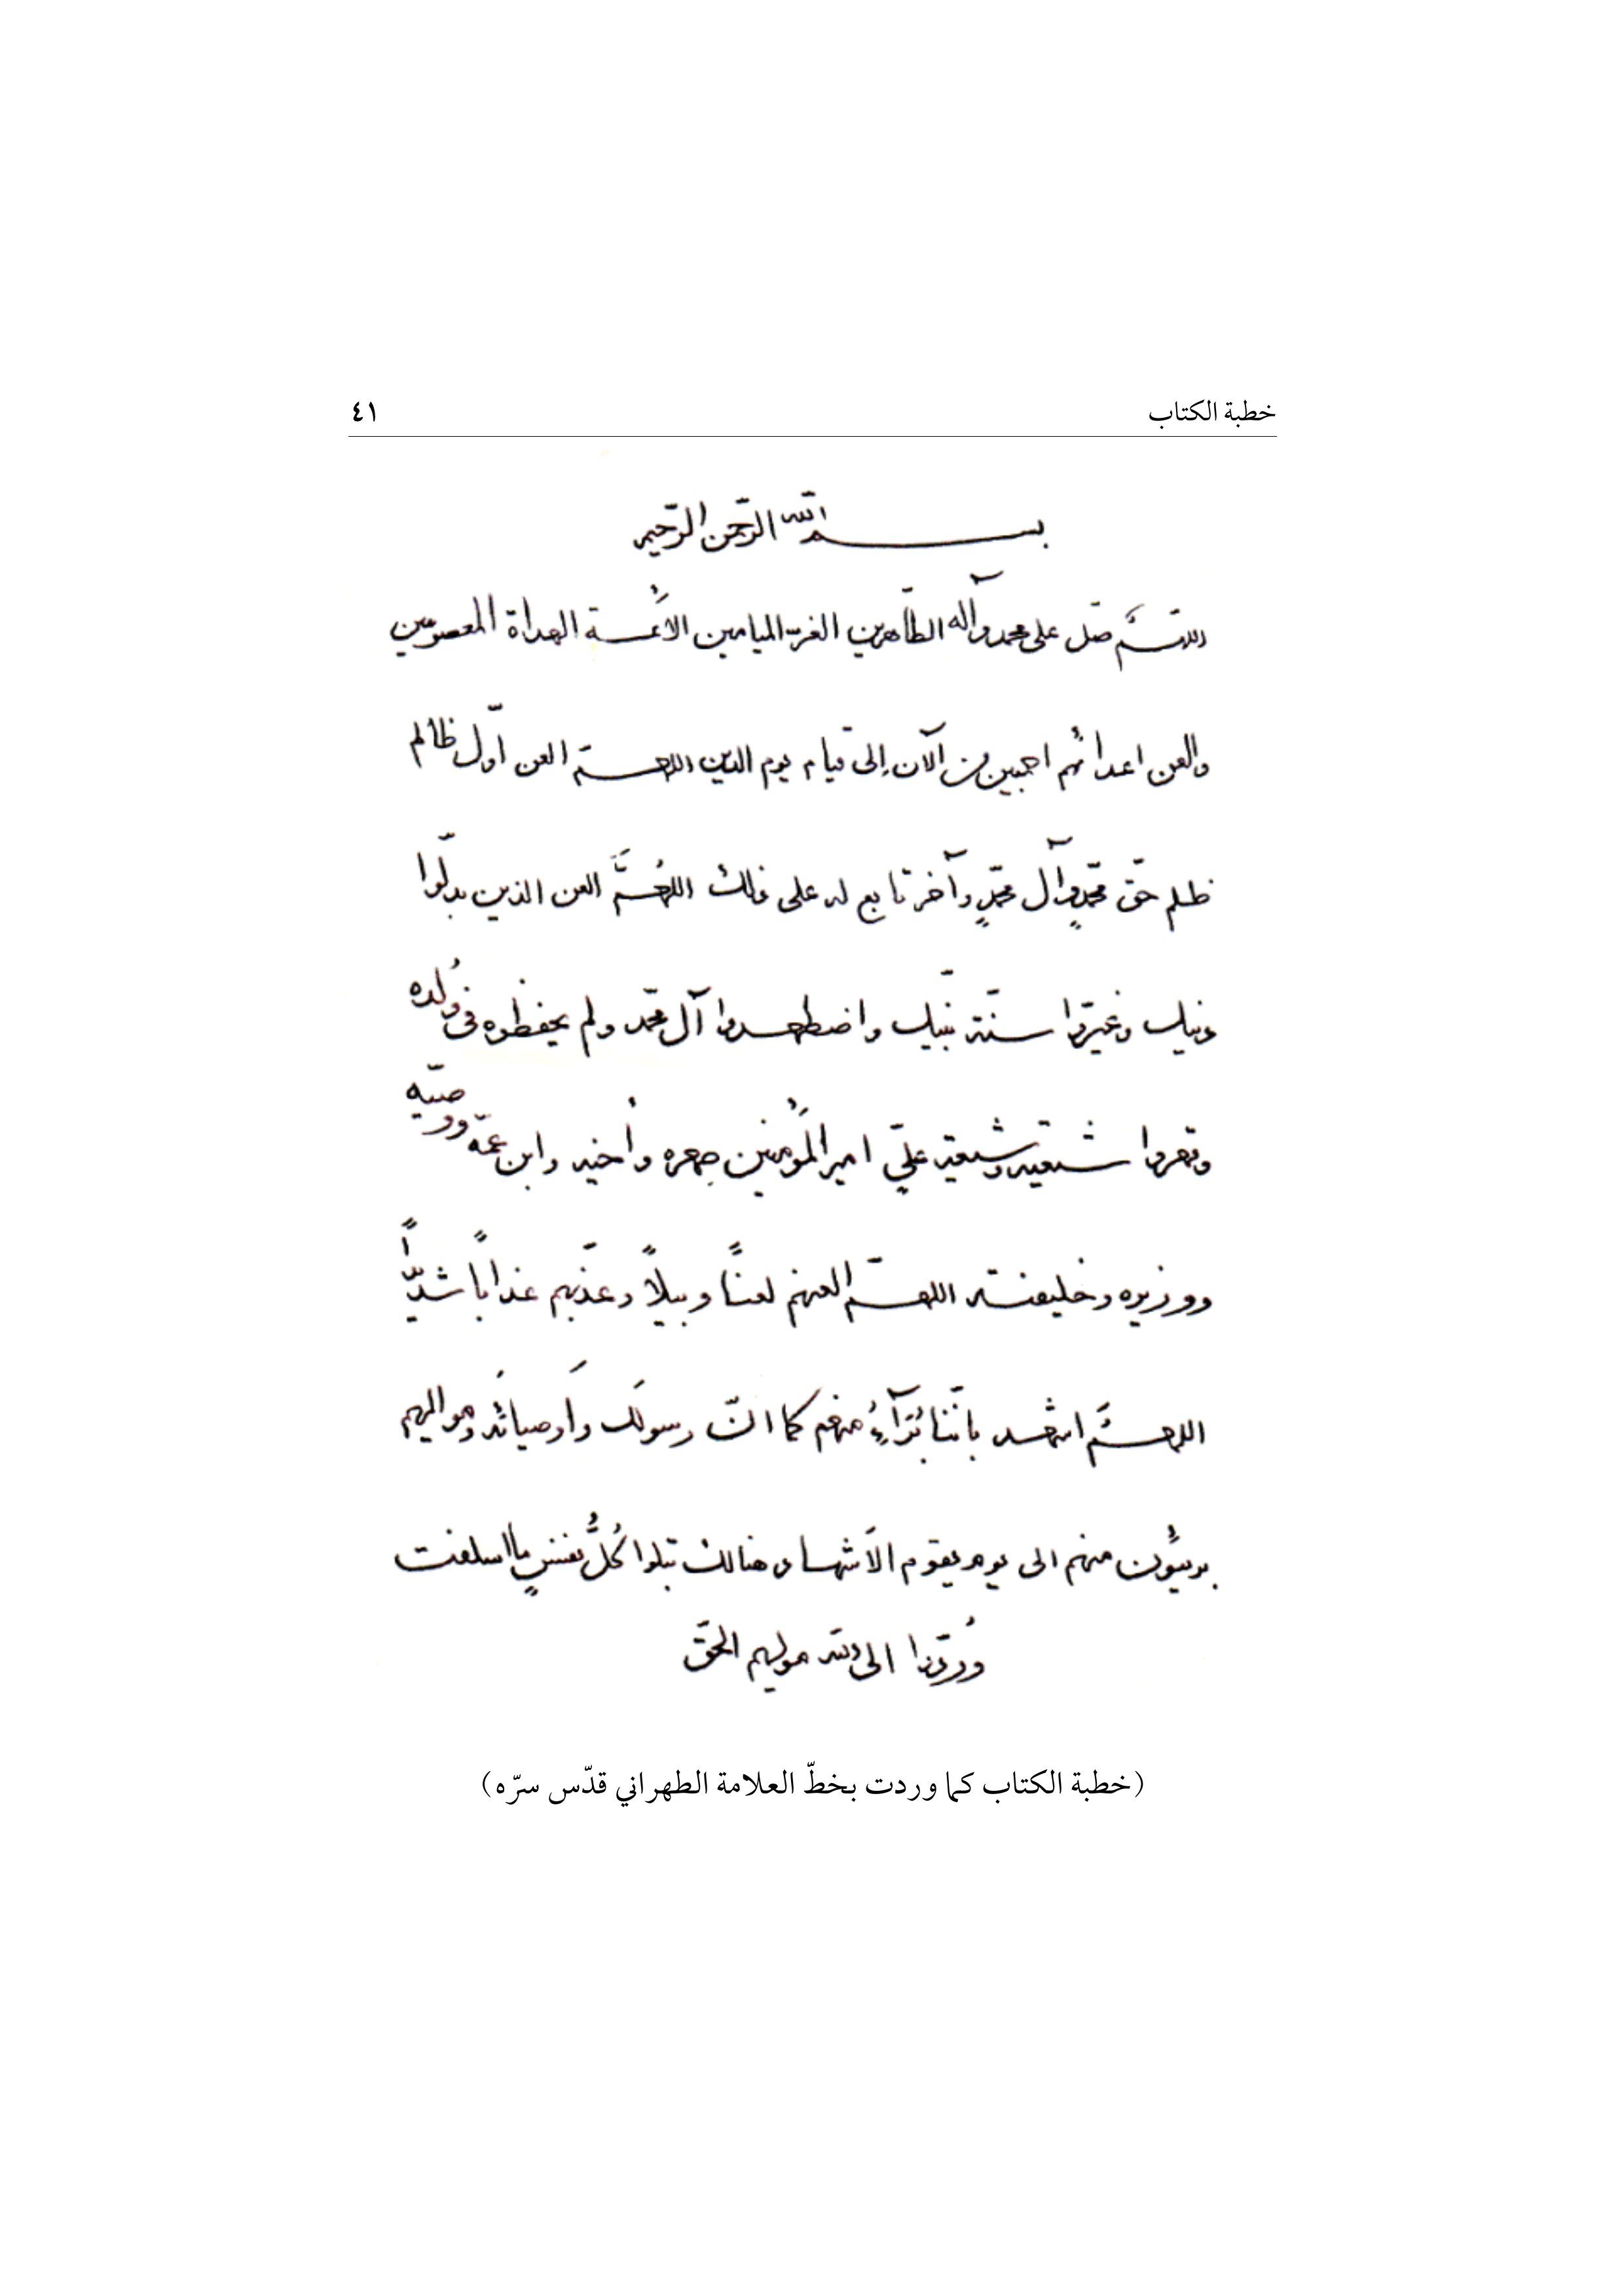 خطبة الكتاب ٤١
بسم الله الرّحمن الرّحيم
اللهمَّ صلّ على محمد وآله الطّاهرين الغرّ الميامين الأئمة الهداة المعصومين
والعن اعدائهم اجمعين من الآن إلى قيام يوم الدين اللهمّ العن اوّل ظالم
ظلم حقّ محمّدٍ وآل محمّدٍ وآخر تابع له على ذلك اللهُمَّ العن الذين بدّلوا
دينك وغيّروا سنّة نبّيك واضطهدوا آل محمّد ولم يحفظوه فى وُلده
وقهروا شيعته وشيعة عليّ امير المؤمنين صهره وأخيه وابن عمّه ووصيّه
ووزيره وخليفته اللهمّ العنهم لعنًا وبيلاً وعذّبهم عذابًا شديدًا
اللهمَّ اشهد بانّنا بُرَآءُ منهم كما انّ رسولَك وأوصيائَه ومواليهم
بريئون منهم الى يوم يقوم الاَشهاد هنالك تبلوا كُلُّ نفسٍ ما اسلفت
وُردّوا الى الله موليهم الحقّ
(خطبة الكتاب كما وردت بخطّ العلامة الطهراني قدّس سرّه)